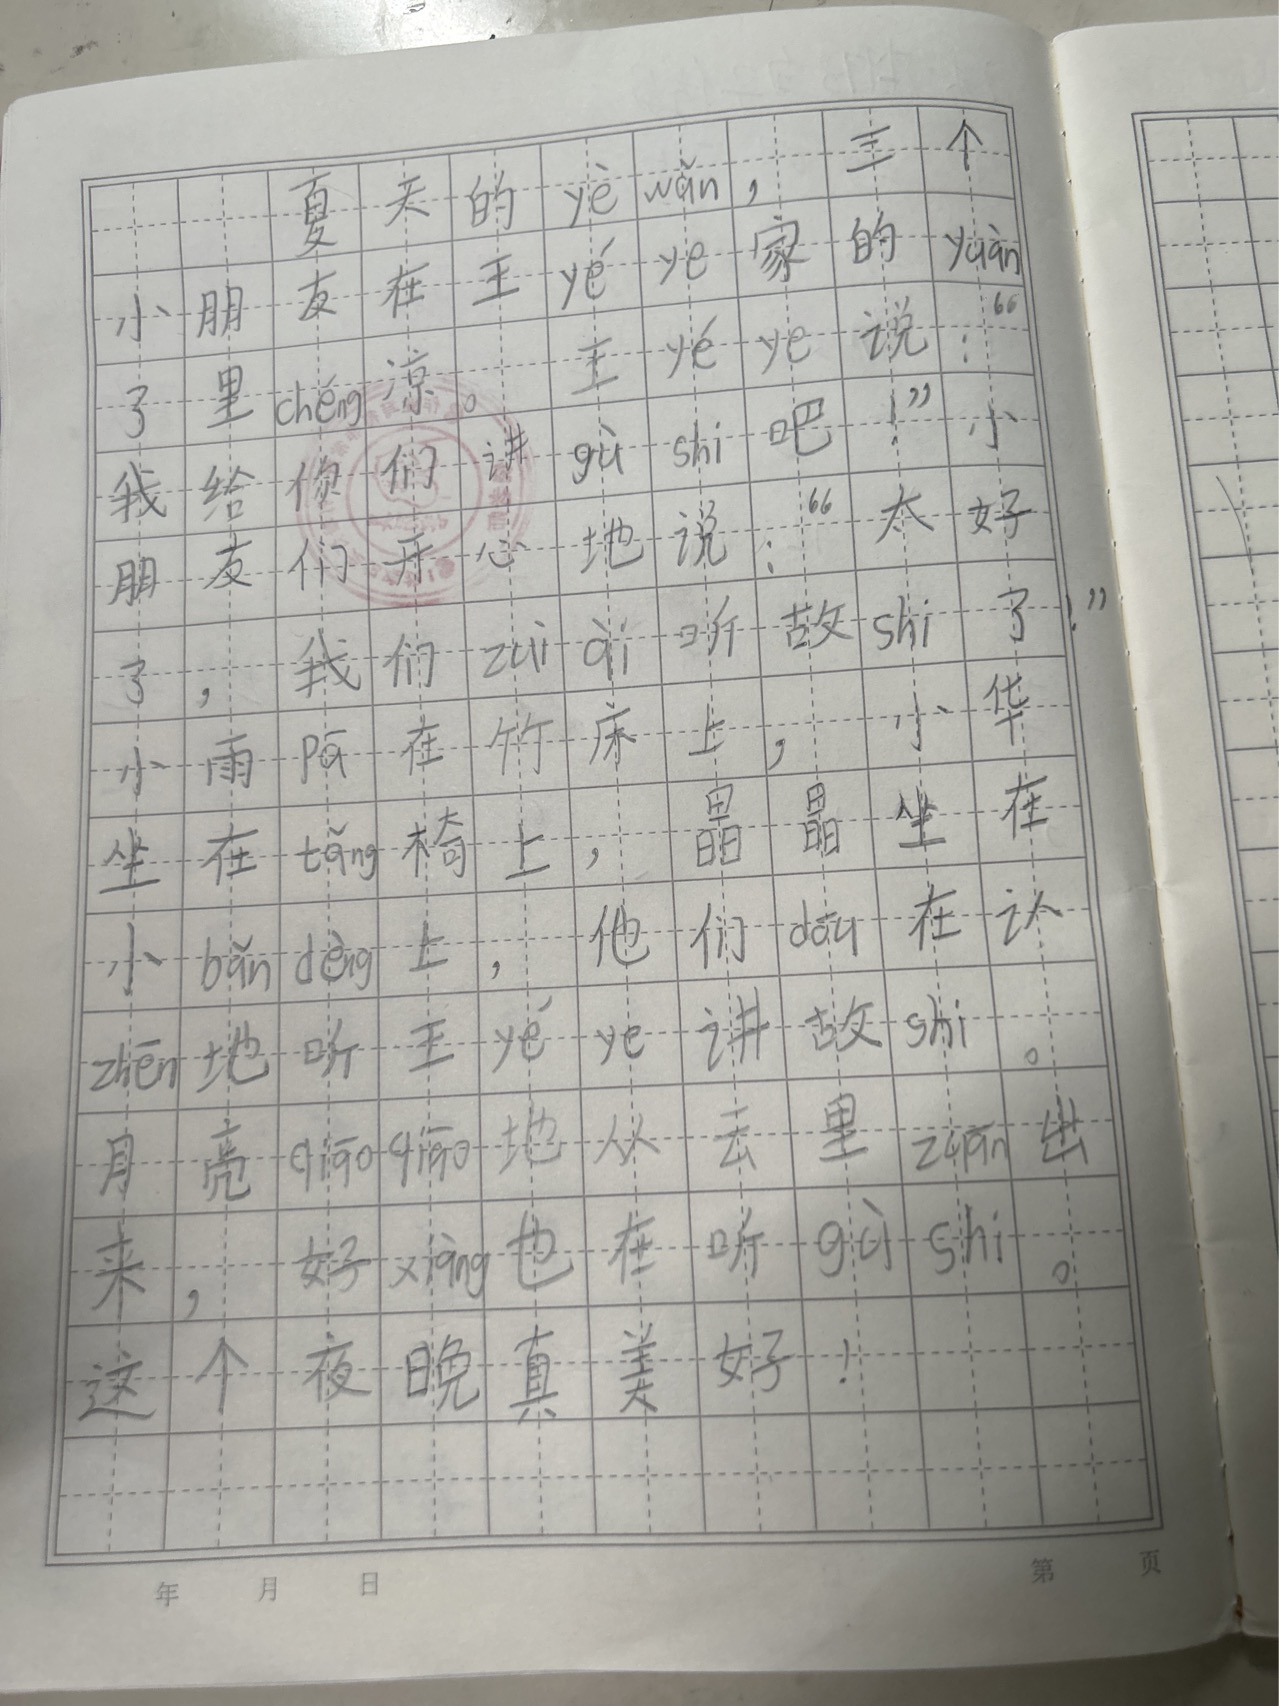 夏天的yè wǎn，三个
小朋友在王yé ye家的yuàn
了里chéng凉。王yé ye说：“
我给你们讲gù shi吧！”小
朋友们开心地说：“太好
了，我们zuì ài听故shi了！”
小雨pā在竹床上，小华
坐在tǎng椅上，晶晶坐在
小bǎn dèng上，他们dōu在认
zhēn地听王yé ye讲故shi。
月亮qiāo qiāo地从云里zuān出
来，好xiàng也在听gù shi。
这个夜晚真美好！
年 月 日
第 页